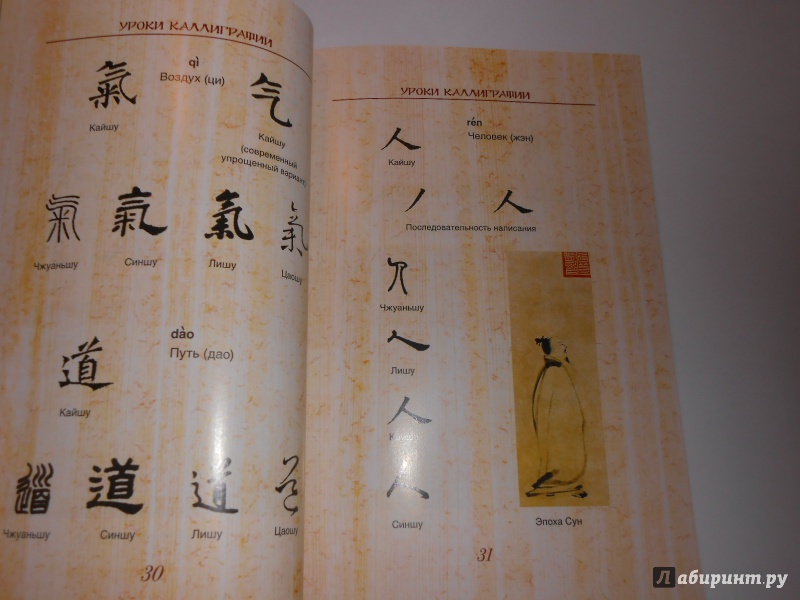 УРОКИ КАЛЛИГРАФИИ
qì
Воздух (ци)
氣
Кайшу
气
Кайшу
(современный
упрощенный вариант)
氣 氣 氣 氣
Чжуаньшу Синшу Лишу Цаошу
dào
Путь (дао)
道
Кайшу
道 道 道 道
Чжуаньшу Синшу Лишу Цаошу
30
УРОКИ КАЛЛИГРАФИИ
rén
Человек (жэн)
人
Кайшу
丿 人
Последовательность написания
人
Чжуаньшу
人
Лишу
人
人
Синшу
Эпоха Сун
31
Лабиринт.ру